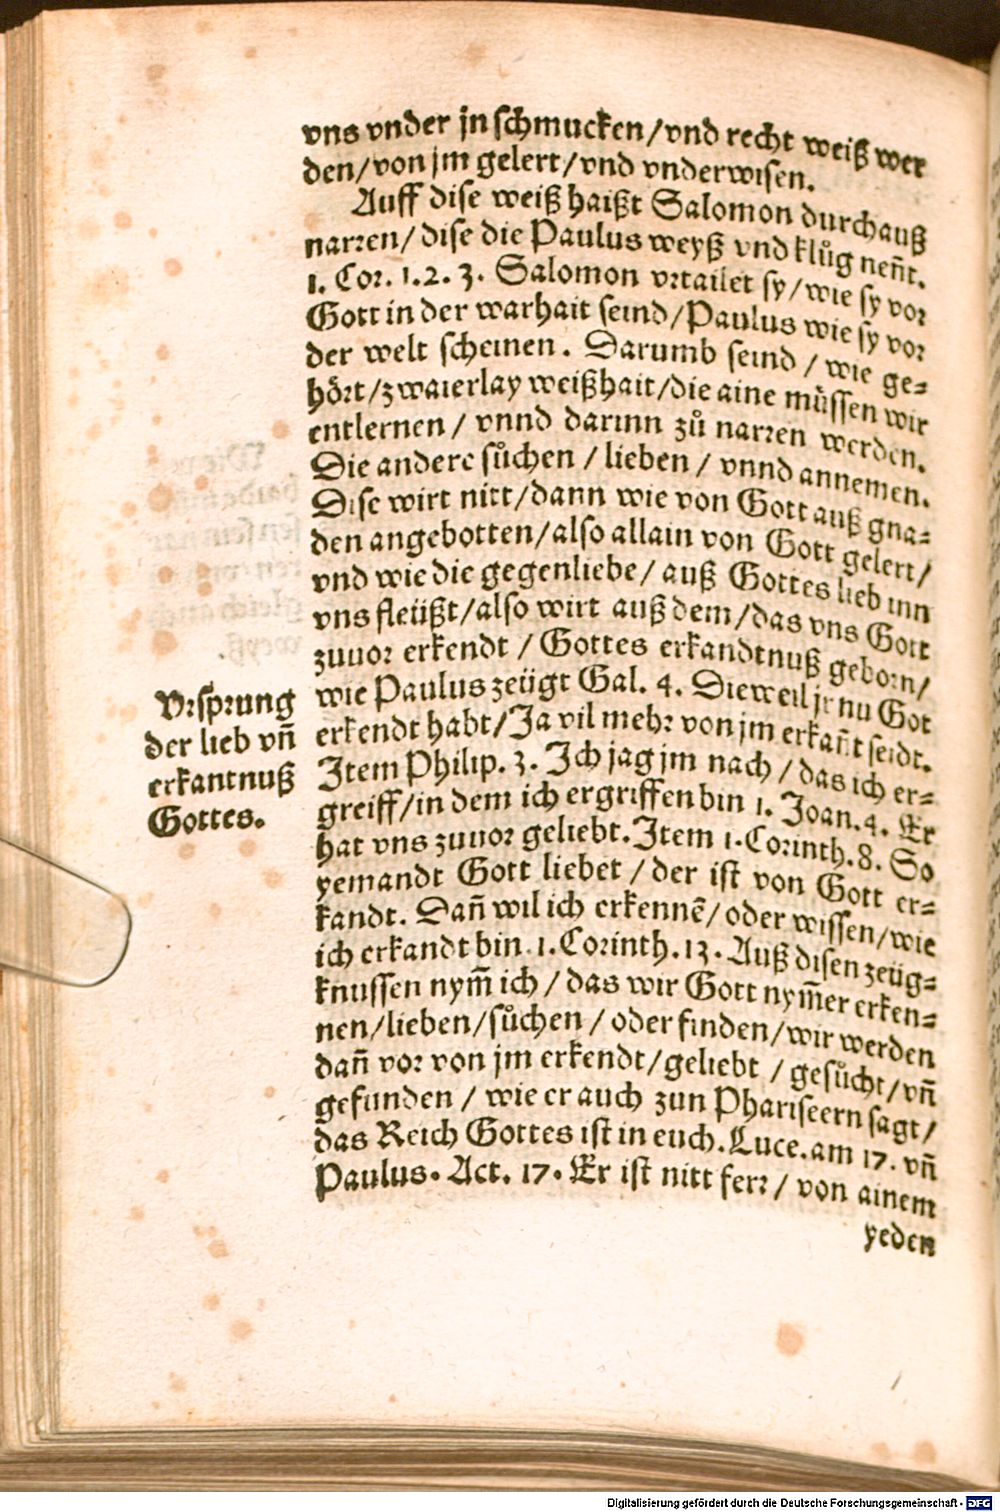 vns vnder jn schmucken/vnd recht weiß wer
den/von jm gelert/vnd vnderwisen.
Auff dise weiß haißt Salomon durchauß
narren/ dise die Paulus weyß vnd klůg nen̄t.
1. Cor. 1.2.3. Salomon vrtailet sy/wie sy vor
Gott in der warhait seind/Paulus wie sy vor
der welt scheinen. Darumb seind / wie ge-
hört/zwaierlay weißhait/die aine müssen wir
entlernen / vnnd darinn zů narren werden.
Die andere sůchen / lieben / vnnd annemen.
Dise wirt nitt/dann wie von Gott auß gna-
den angebotten/also allain von Gott gelert/
vnd wie die gegenliebe/ auß Gottes lieb inn
vns fleüßt/also wirt auß dem/das vns Gott
zuuor erkendt / Gottes erkandtnuß geborn/
wie Paulus zeügt Gal. 4. Dieweil jr nu Got
erkendt habt/Ja vil mehr von jm erkan̄t seidt.
Item Philip. 3. Ich jag jm nach / das ich er-
greiff/in dem ich ergriffen bin 1. Joan. 4. Er
hat vns zuuor geliebt. Item 1. Corinth. 8. So
yemandt Gott liebet / der ist von Gott er-
kandt. Dan̄ wil ich erkennē/oder wissen/wie
ich erkandt bin 1. Corinth. 13. Auß disen zeüg-
knussen nym̄ ich / das wir Gott nym̄er erken-
nen/lieben/sůchen / oder finden/wir werden
dan̄ vor von jm erkendt/geliebt / gesůcht/vn̄
gefunden / wie er auch zun Phariseern sagt/
das Reich Gottes ist in euch. Luce. am 17. vn̄
Paulus. Act. 17. Er ist nitt ferr / von ainem
yeden
Vrsprung
der lieb vn̄
erkantnuß
Gottes.
Digitalisierung gefördert durch die Deutsche Forschungsgemeinschaft - DFG